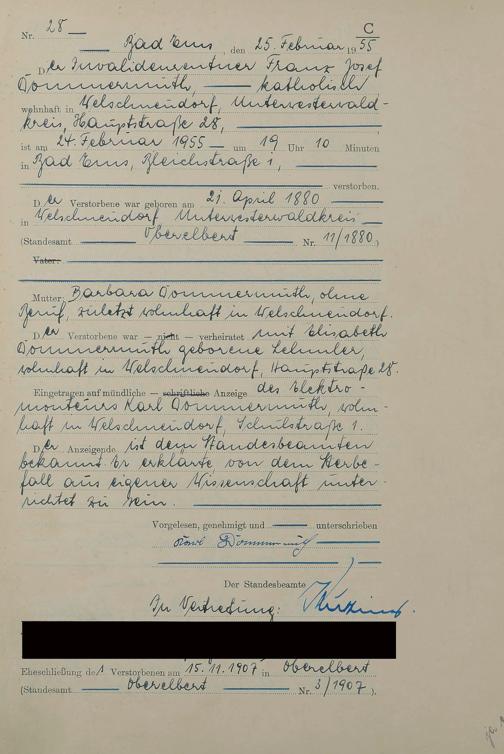 C
Nr. 28
Bad Ems, den 25. Februar 1955
Der Invalidenrentner Franz Josef
Dommermuth, katholisch
wohnhaft in Welschneudorf, Unterwesterwald-
kreis, Hauptstraße 28,
ist am 24. Februar 1955 um 19 Uhr 10 Minuten
in Bad Ems, Bleichstraße 1,
verstorben.
Der Verstorbene war geboren am 21. April 1880
in Welschneudorf Unterwesterwaldkreis
(Standesamt Oberelbert Nr. 11/1880)
Vater:
Mutter: Barbara Dommermuth, ohne
Beruf, zuletzt wohnhaft in Welschneudorf.
Der Verstorbene war — nicht — verheiratet mit Elisabeth
Dommermuth geborene Lehmler,
wohnhaft in Welschneudorf, Hauptstraße 28.
Eingetragen auf mündliche — schriftliche Anzeige des Elektro-
monteurs Karl Dommermuth, wohn-
haft in Welschneudorf, Schulstraße 1.
Der Anzeigende ist dem Standesbeamten
bekannt. Er erklärte, von dem Sterbe-
fall aus eigener Wissenschaft unter-
richtet zu sein.
Vorgelesen, genehmigt und unterschrieben
Karl Dommermuth
Der Standesbeamte
In Vertretung:
Eheschließung des Verstorbenen am 15.11.1907 in Oberelbert
(Standesamt Oberelbert Nr. 3/1907).